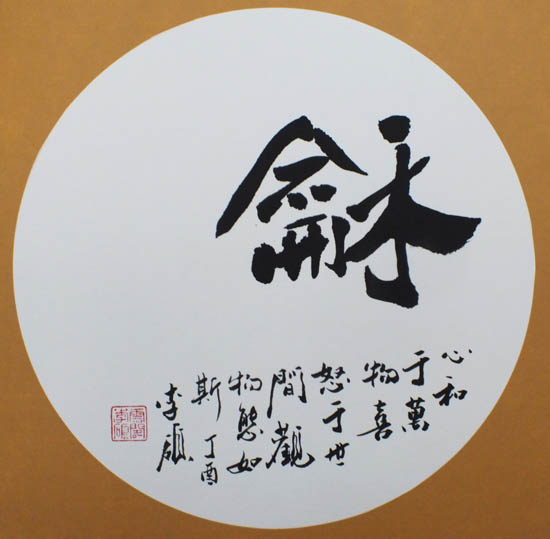 龢
心和
于萬
物喜
怒于世
間觀
物態如
斯 丁酉
李